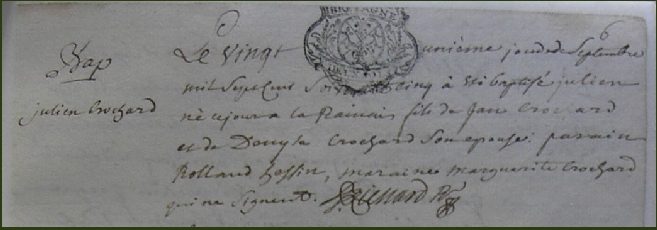 6
BRETAGNE
Bap
julien Crochard
Le vingt unième jour de Septembre
mil Sept Cens cinq à été baptisé julien
né ce jour a la fils de Jan Crochard
et de Crochard Son epouse: parain
Rolland maraine marguerite Crochard
qui ne Signent.